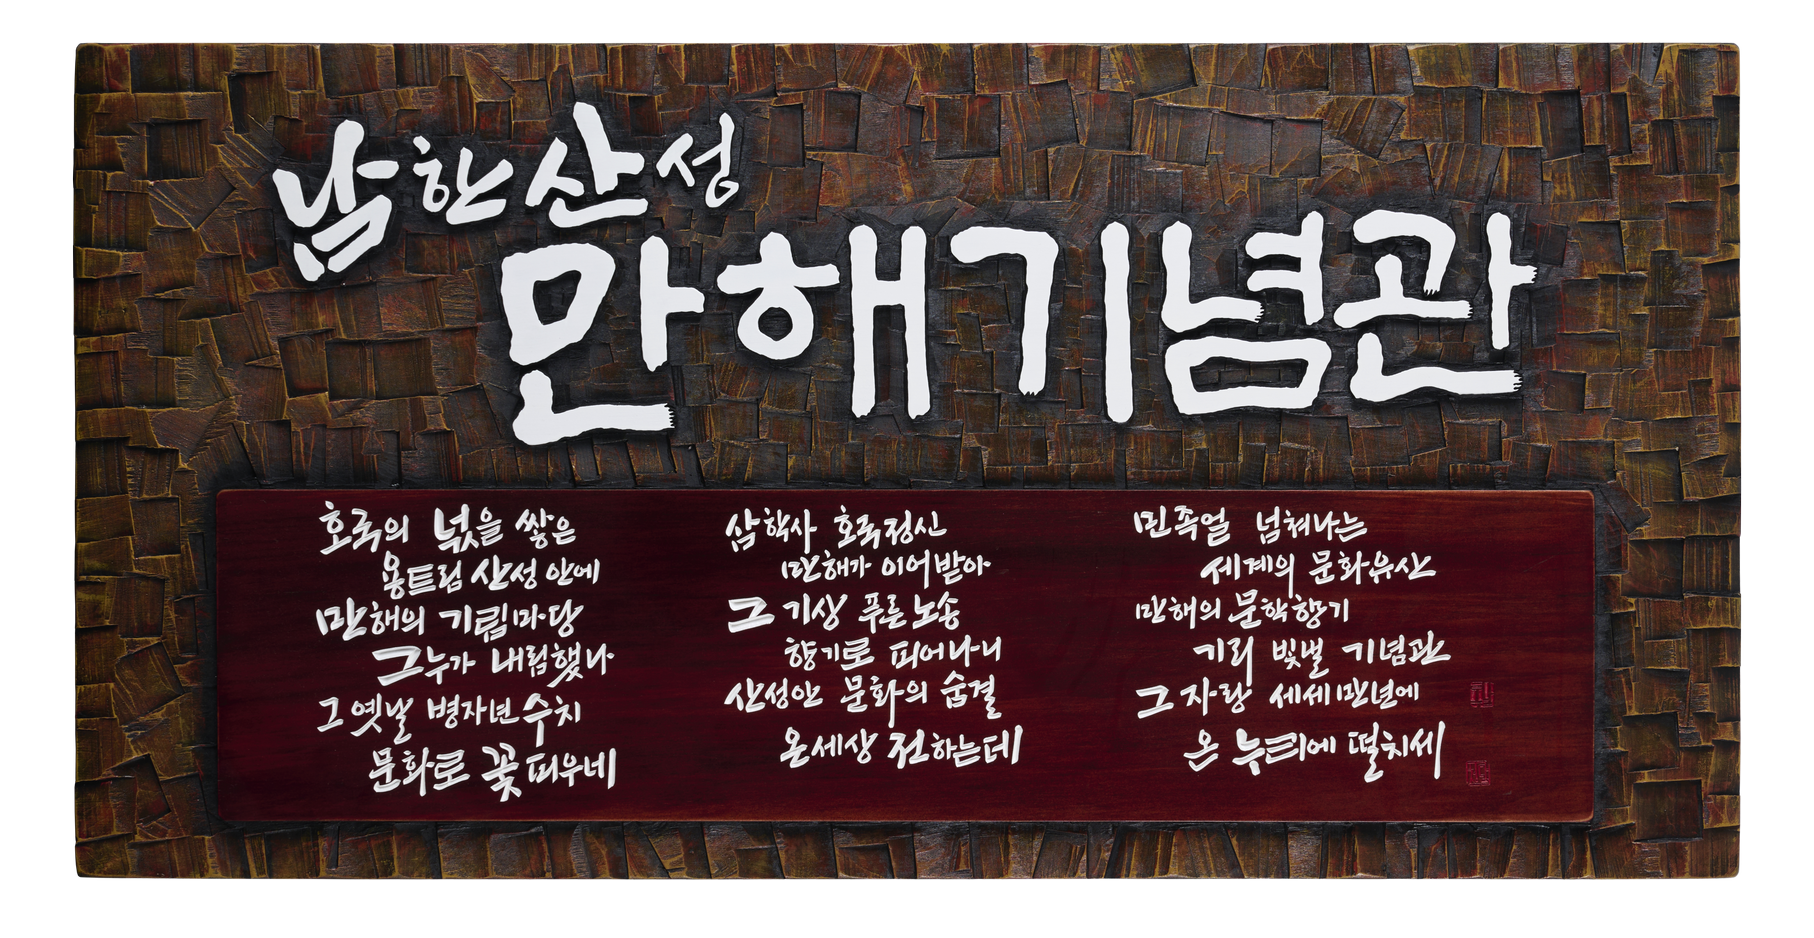 남한산성
만해기념관
호국의 넋을 쌓은
용트림 산성 안에
만해의 기림마당
그누가 내림했나
그옛날 병자년 수치
문화로 꽃피우네
삼학사 호국정신
만해가 이어받아
그 기상 푸른 노송
향기로 피어나니
산성안 문화의 숨결
온세상 전하는데
민족얼 넘쳐나는
세계의 문화유산
만해의 문학향기
기리 빛낼 기념관
그자랑 세세만년에
온 누리에 떨치세